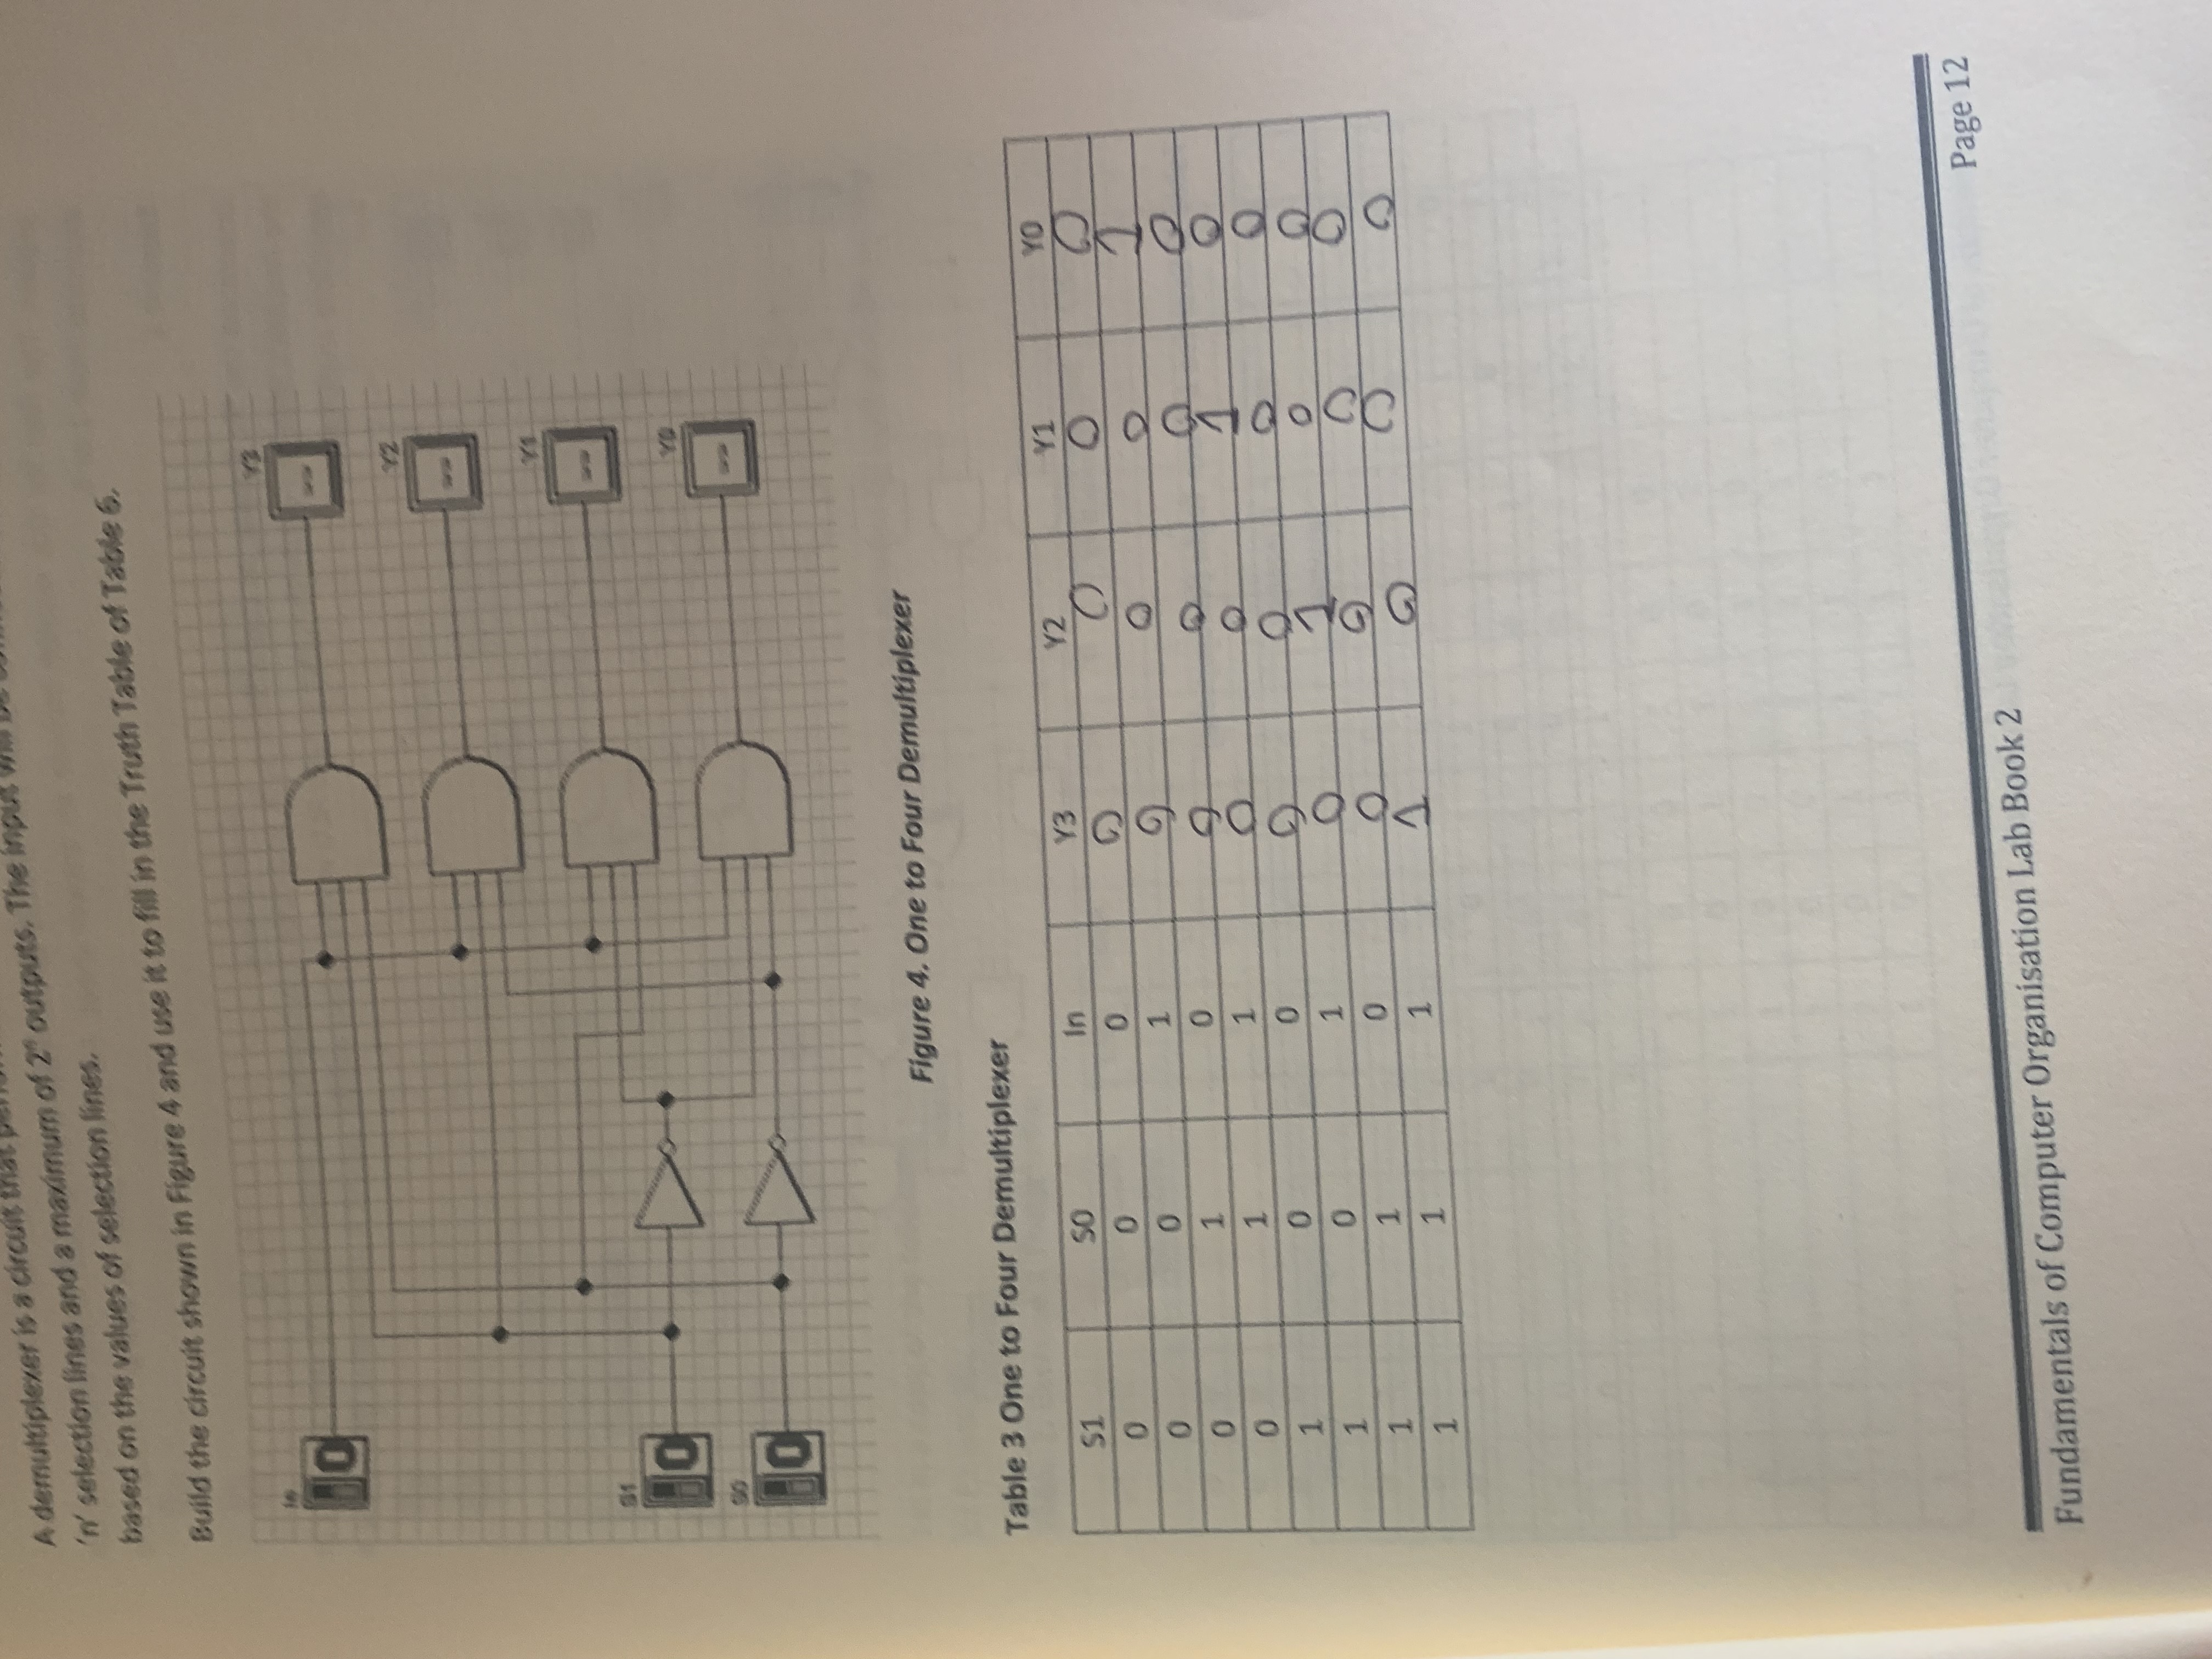 A demultiplexer is a circuit that
'n' selection lines and a maximum of 2ⁿ outputs. The input will be
based on the values of selection lines.
Build the circuit shown in Figure 4 and use it to fill in the Truth Table of Table 6.
In
0
Y3
--
Y2
--
Y1
--
S1
0
Y0
--
S0
0
Figure 4. One to Four Demultiplexer
Table 3 One to Four Demultiplexer
S1 S0 In Y3 Y2 Y1 Y0
0 0 0 0 0 0 0
0 0 1 0 0 0 1
0 1 0 0 0 0 0
0 1 1 0 0 1 0
1 0 0 0 0 0 0
1 0 1 0 1 0 0
1 1 0 0 0 0 0
1 1 1 1 0 0 0
Page 12
Fundamentals of Computer Organisation Lab Book 2